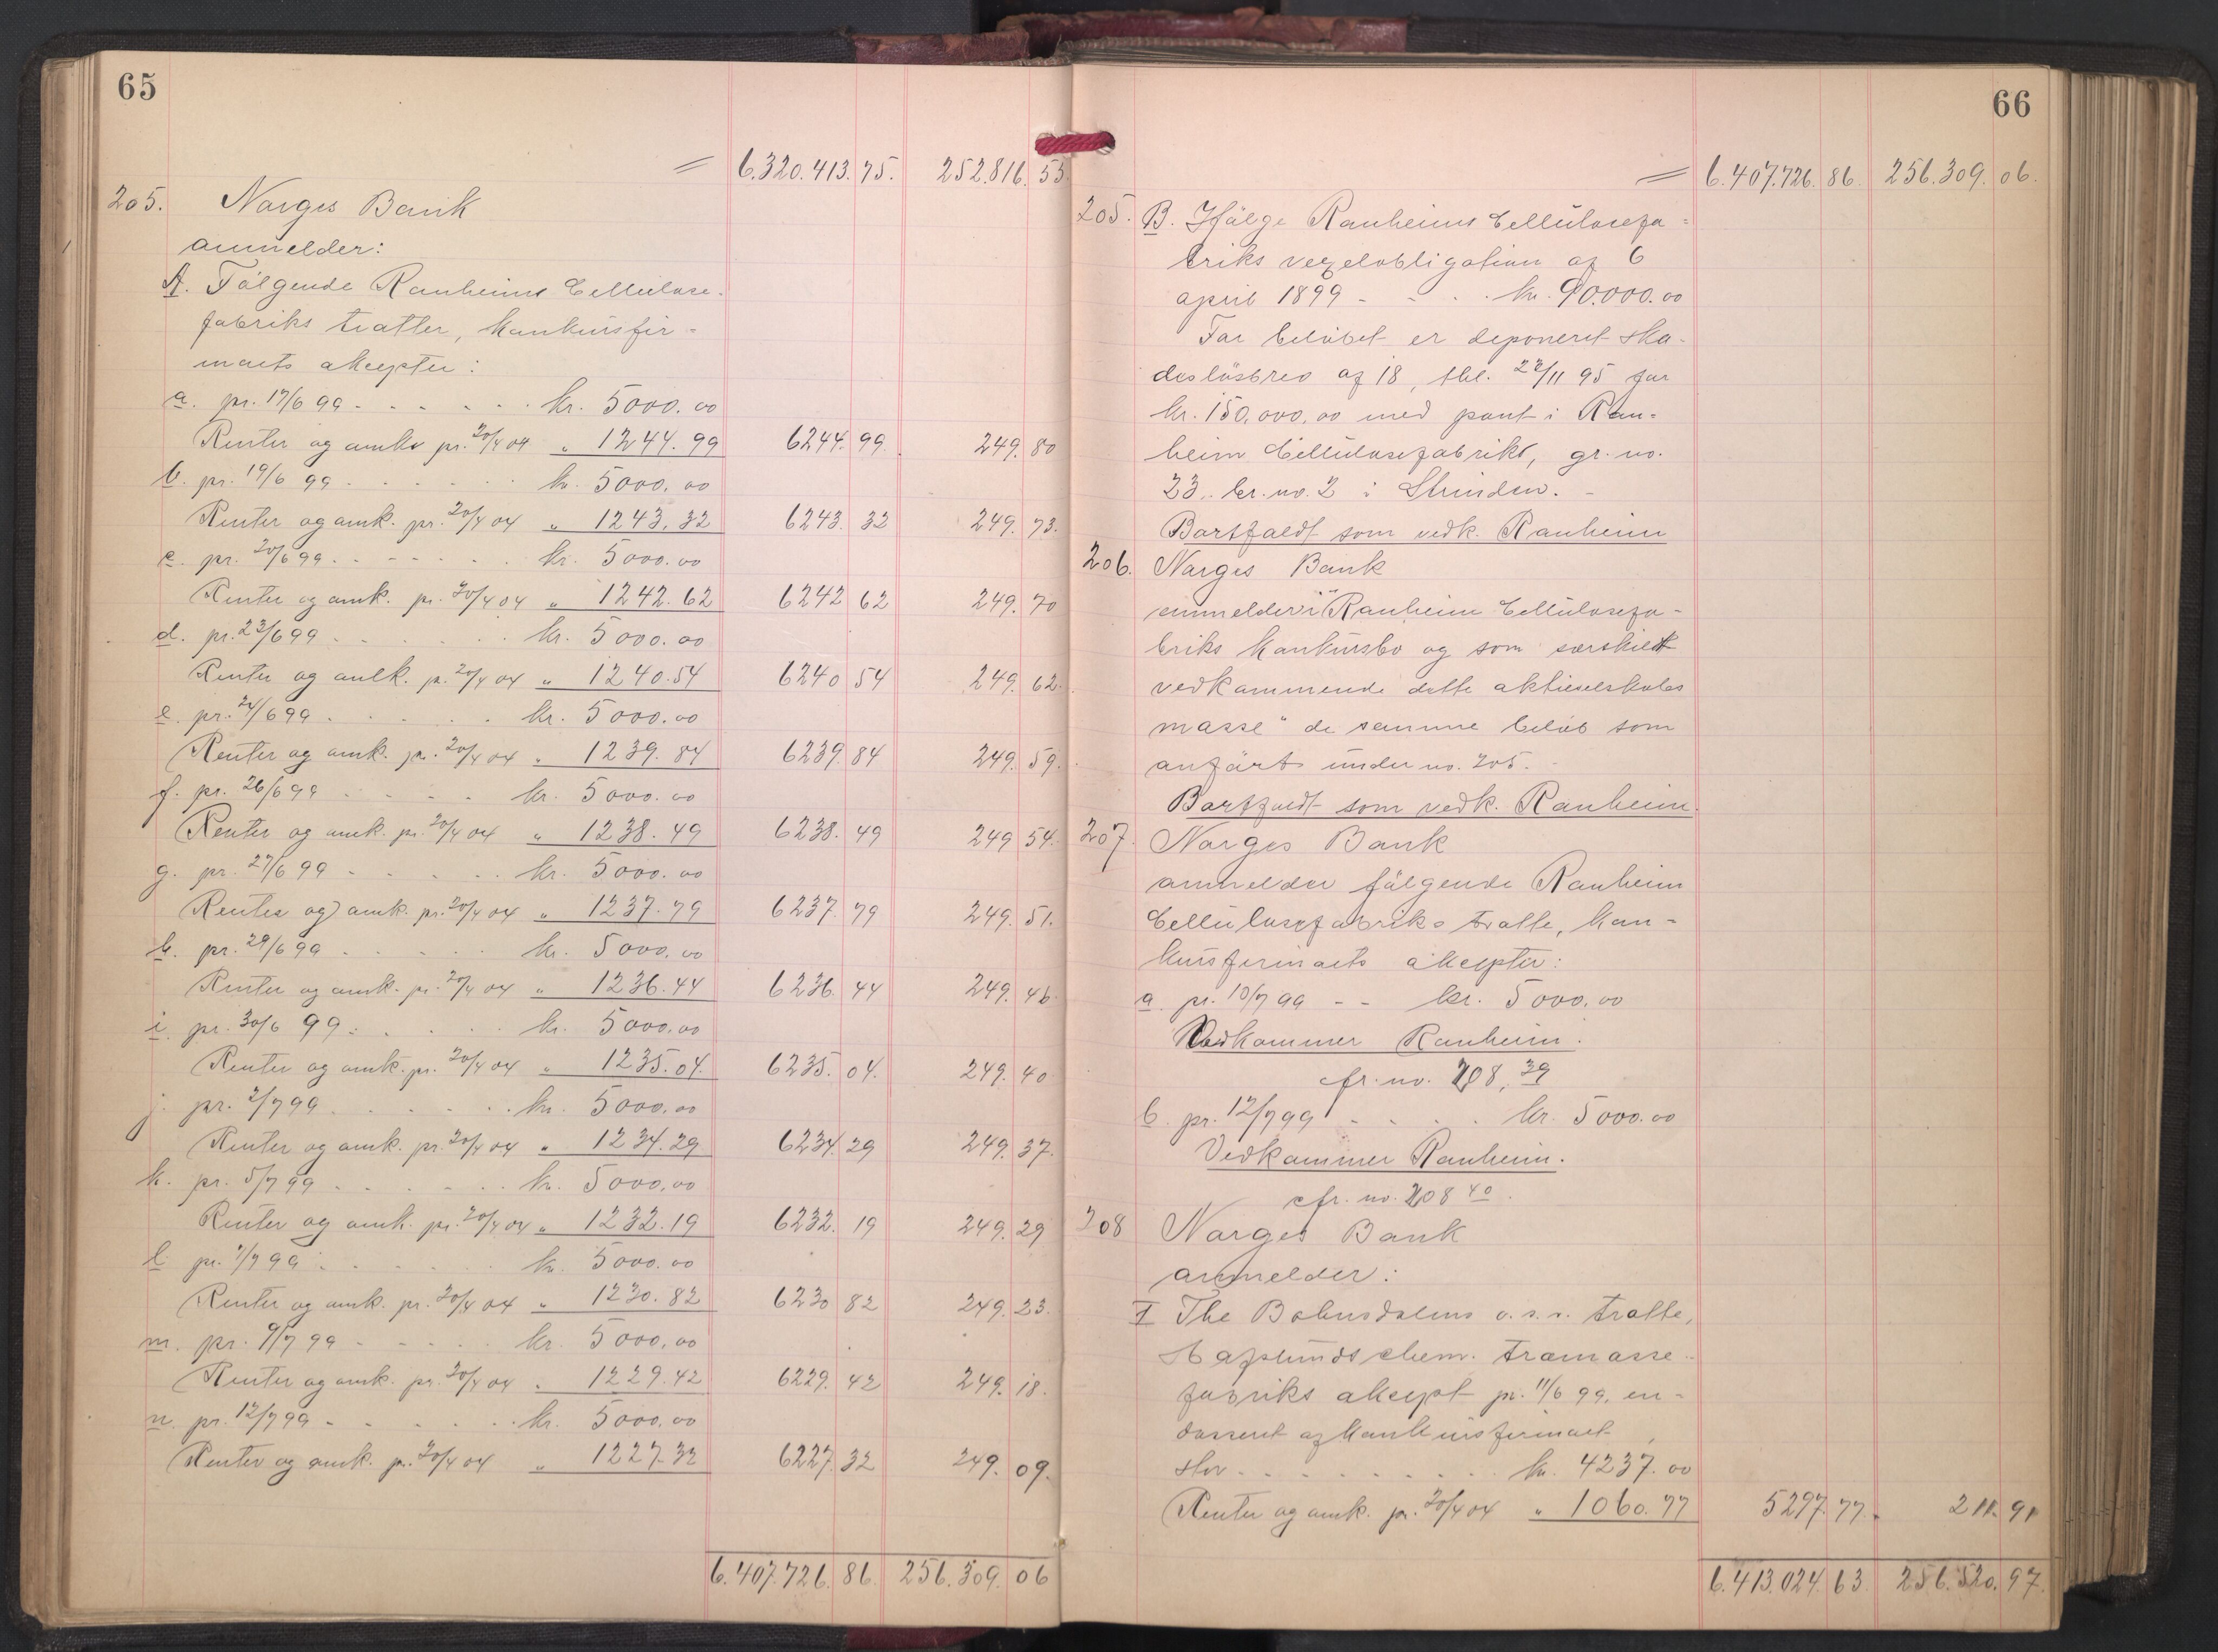 65
= 6.320.413.75. 252.816.53.
205. Norges Bank
anmelder:
A. Følgende Ranheims Cellulose-
fabriks tratter, konkursfir-
maets aksepter:
a. pr. 17/6 99 - - - - - - kr. 5000.00
Renter og omk. pr. 20/4 04 " 1244.99 6244.99. 249.80
b. pr. 19/6 99 - - - - - - kr. 5000.00
Renter og omk. pr. 20/4 04 " 1243.32 6243.32 249.73.
c. pr. 20/6 99 - - - - - - kr. 5000.00
Renter og omk. pr. 20/4 04 " 1242.62 6242 62 249.70
d. pr. 23/6 99 - - - - - - kr. 5000.00
Renter og omk. pr. 20/4 04 " 1240.54 6240 54 249.62.
e. pr. 24/6 99 - - - - - - kr. 5000.00
Renter og omk. pr. 20/4 04 " 1239.84 6239.84 249.59.
f. pr. 26/6 99 - - - - - kr. 5000.00
Renter og omk. pr. 20/4 04 " 1238.49 6238.49 249 54.
g. pr. 27/6 99 - - - - - kr. 5000.00
Renter og omk. pr. 20/4 04 " 1237.79 6237.79 249.51.
h. pr. 29/6 99 - - - - - kr. 5000.00
Renter og omk. pr. 20/4 04 " 1236.44 6236.44 249.46.
i. pr. 30/6 99 - - - - - kr. 5000.00
Renter og omk. pr. 20/4 04 " 1235.04. 6235.04. 249.40
j. pr. 3/7 99 - - - - - - kr. 5000.00
Renter og omk. pr. 20/4 04 " 1234.29 6234.29 249.37.
k. pr. 5/7 99 - - - - - - kr. 5000.00
Renter og omk. pr. 20/4 04 " 1232.19 6232.19 249.29
l. pr. 7/7 99 - - - - - - kr. 5000.00
Renter og omk. pr. 20/4 04 " 1230.82 6230 82 249.23.
m. pr. 9/7 99 - - - - - kr. 5000.00
Renter og omk. pr. 20/4 04 " 1229.42 6229.42 249.18.
n. pr. 12/7 99 - - - - - - kr. 5000.00
Renter og omk. pr. 20/4 04 " 1227.32 6227.32 249.09.
6.407.726.86. 256.309.06
66
= 6.407.726.86. 256.309.06.
205. B. Ifølge Ranheims Cellulosefa-
briks vexelobligation af 6
april 1899 - - - - kr. 90.000.00
For beløbet er deponeret ska-
desløsbrev af 18, tbl. 22/11 95 for
kr. 150.000,00 med pant i Ran-
heim Cellulosefabrikt, gr. no.
23. br. no. 2 i Strinden. -
Bortfaldt som vedk. Ranheim
206. Norges Bank
anmelder i "Ranheim Cellulosefa-
briks konkursbo og som særskilt
vedkommende dette aktieselskabs
masse" de samme beløb som
anført under no. 205.
Bortfaldt som vedk. Ranheim.
207. Norges Bank
anmelder følgende Ranheim
Cellulosefabriks tratte, kon-
kursfirmaets aksepter:
a. pr. 10/7 99 - - kr. 5000.00
Vedkommer Ranheim.
cfr. no. 208, 39
b. pr. 12/7 99 - - - - kr. 5000.00
Vedkommer Ranheim.
cfr. no. 208 40.
208 Norges Bank
anmelder:
I The Bohnsdalens o.s.v. tratte,
Hafslunds chem. træmasse-
fabriks aksept pr. 11/6 99, en-
dosseret af konkursfirmaet,
stor - - - - - - - - - kr. 4237.00
Renter og omk. pr. 20/4 04 " 1060.77 5297.77. 211.91
6.413.024.63 256.520.97.